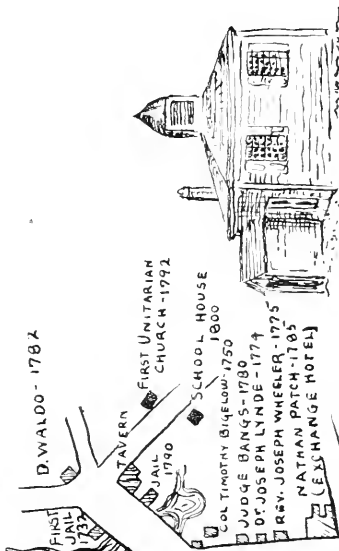 D. WALDO - 1782
FIRST
JAIL
1733
TAVERN
FIRST UNITARIAN
CHURCH - 1792
JAIL
1790
SCHOOL HOUSE
1800
COL TIMOTHY BIGELOW - 1750
JUDGE BANGS - 1780
DR JOSEPH LYNDE - 1774
REV. JOSEPH WHEELER - 1775
NATHAN PATCH - 1785
(EXCHANGE HOTEL)